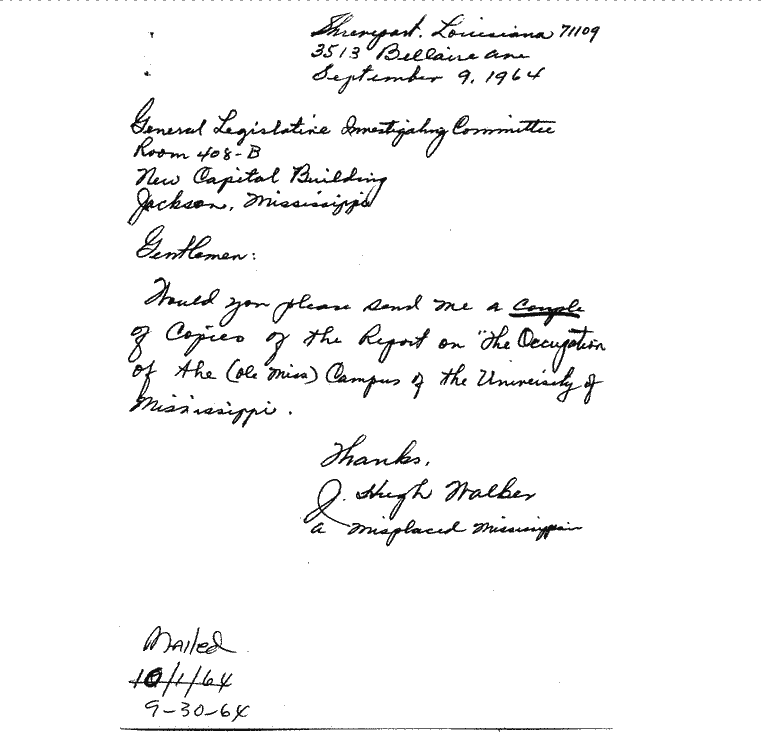 Shreveport, Louisiana 71109
3513 Bellaire Ave
September 9, 1964
General Legislative Investigating Committee
Room 408-B
New Capital Building
Jackson, Mississippi
Gentlemen:
Would you please send me a Couple
of Copies of the Report on "The Occupation
of the (Ole Miss) Campus of the University of
Mississippi.
Thanks,
J. Hugh Walker
a misplaced Mississippian
Mailed
10/1/64
9-30-64